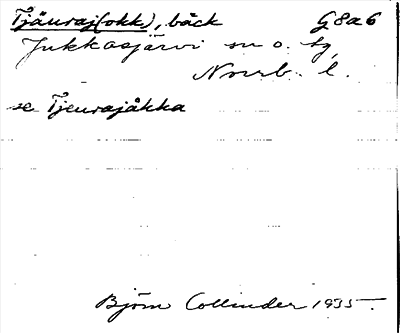 Tjäuraj(okk), bäck G8a6
Jukkasjärvi sn o. tg,
Norrb. l.
se Tjeurajåkka
Björn Collinder 1935.